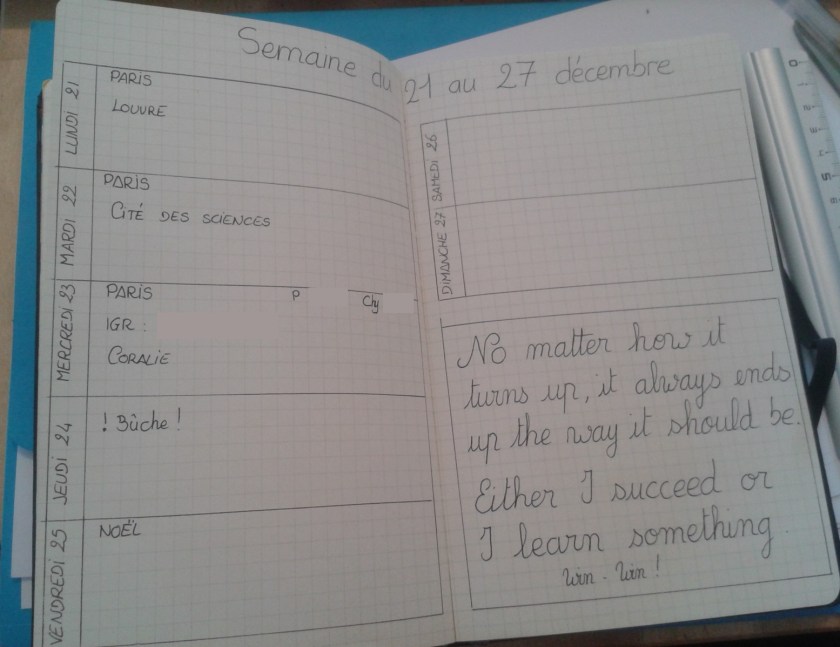 Semaine du 21 au 27 décembre
LUNDI 21
PARIS
LOUVRE
MARDI 22
PARIS
CITÉ DES SCIENCES
MERCREDI 23
PARIS P Chy
IGR :
CORALIE
JEUDI 24
! Bûche !
VENDREDI 25
NOËL
SAMEDI 26
DIMANCHE 27
No matter how it
turns up, it always ends
up the way it should be.
Either I succeed or
I learn something.
Win - Win !